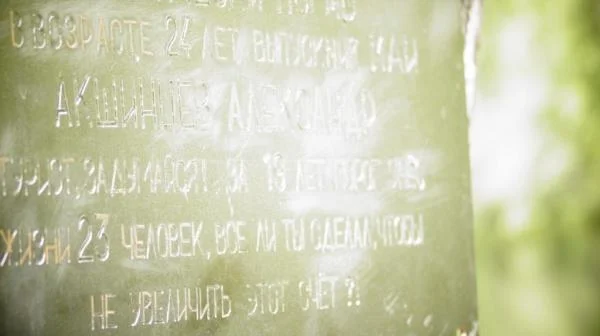 В ВОЗРАСТЕ 24 ЛЕТ ВЫПУСКНИК МАИ
АКШИНЦЕВ АЛЕКСАНДР
ТУРИСТ, ЗАДУМАЙСЯ! ЗА 13 ЛЕТ ПОРОГ
ЖИЗНИ 23 ЧЕЛОВЕК, ВСЕ ЛИ ТЫ СДЕЛАЛ, ЧТОБЫ
НЕ УВЕЛИЧИТЬ ЭТОТ СЧЁТ?!